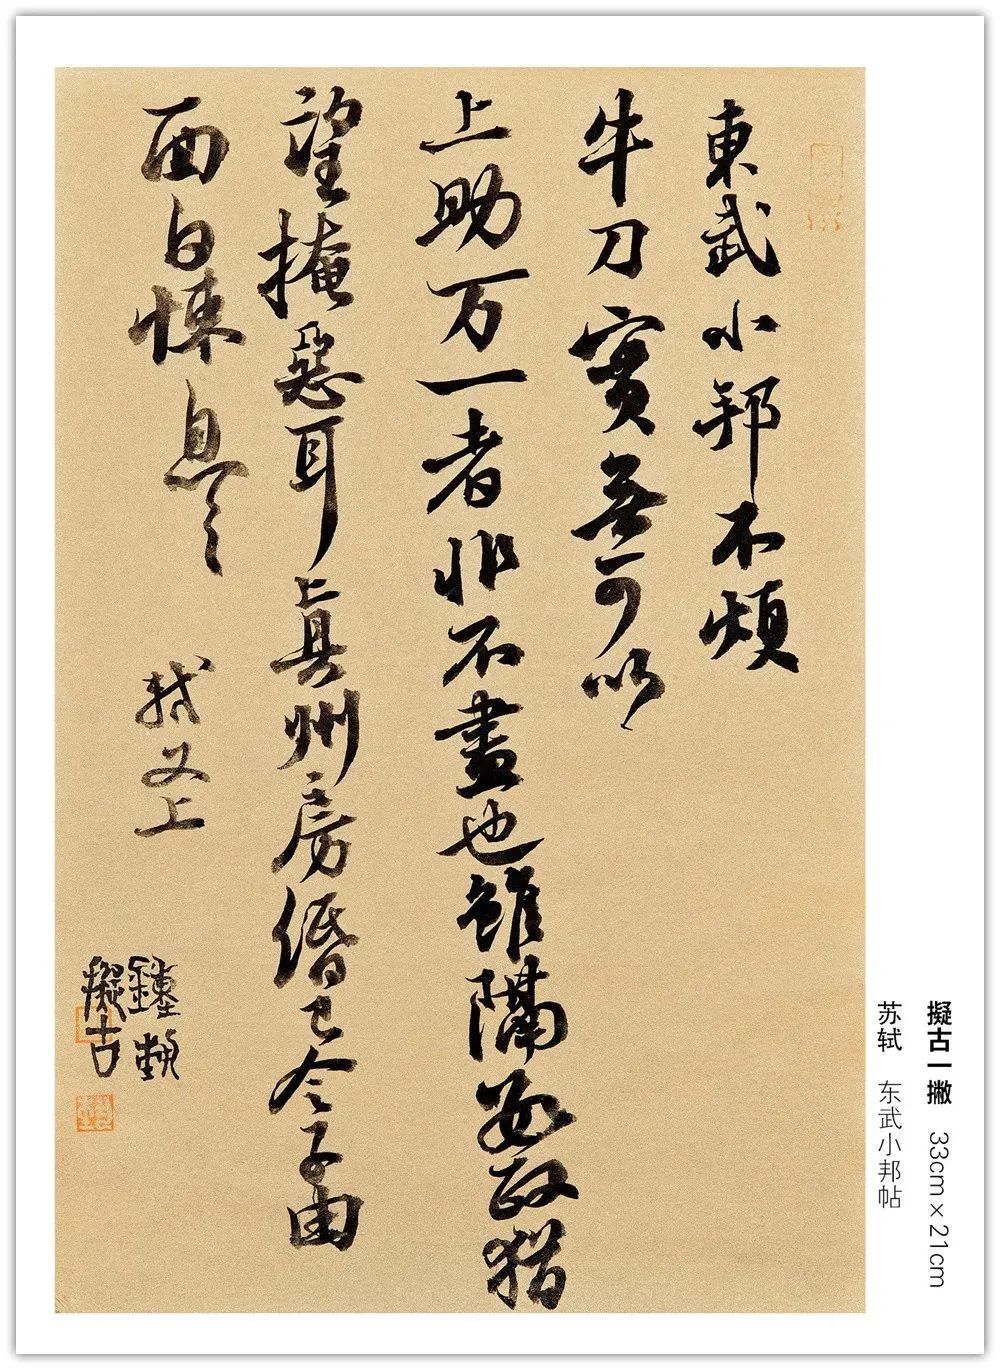 東武小邦不煩
牛刀實無可以
上助万一者非不盡也雖隔數政猶
望掩惡耳真州房緡已令子由
面白悚息〻
軾又上
擬古
擬古一撇 33cm×21cm
苏轼 东武小邦帖